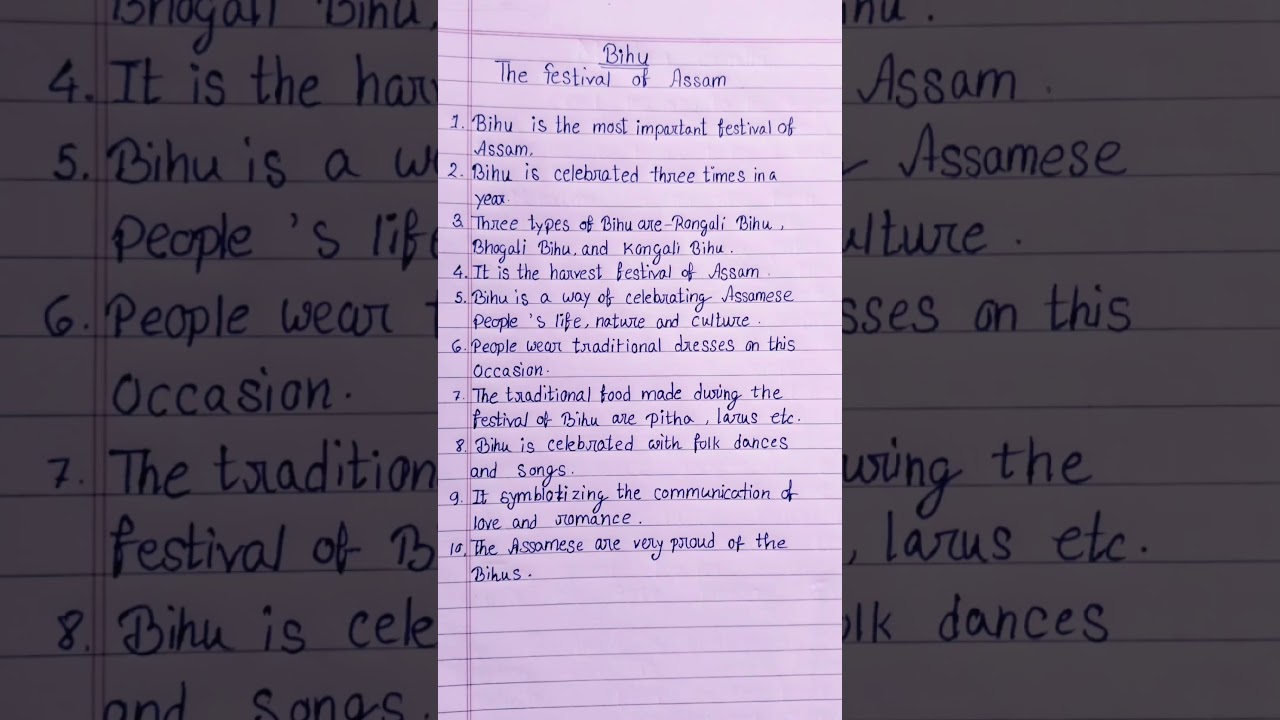 Bihu
The festival of Assam
1. Bihu is the most important festival of
Assam.
2. Bihu is celebrated three times in a
year.
3. Three types of Bihu are - Rongali Bihu,
Bhogali Bihu, and Kongali Bihu.
4. It is the harvest festival of Assam.
5. Bihu is a way of celebrating Assamese
People's life, nature and culture.
6. People wear traditional dresses on this
Occasion.
7. The traditional food made during the
festival of Bihu are pitha, larus etc.
8. Bihu is celebrated with folk dances
and songs.
9. It symblotizing the communication of
love and romance.
10. The Assamese are very proud of the
Bihus.